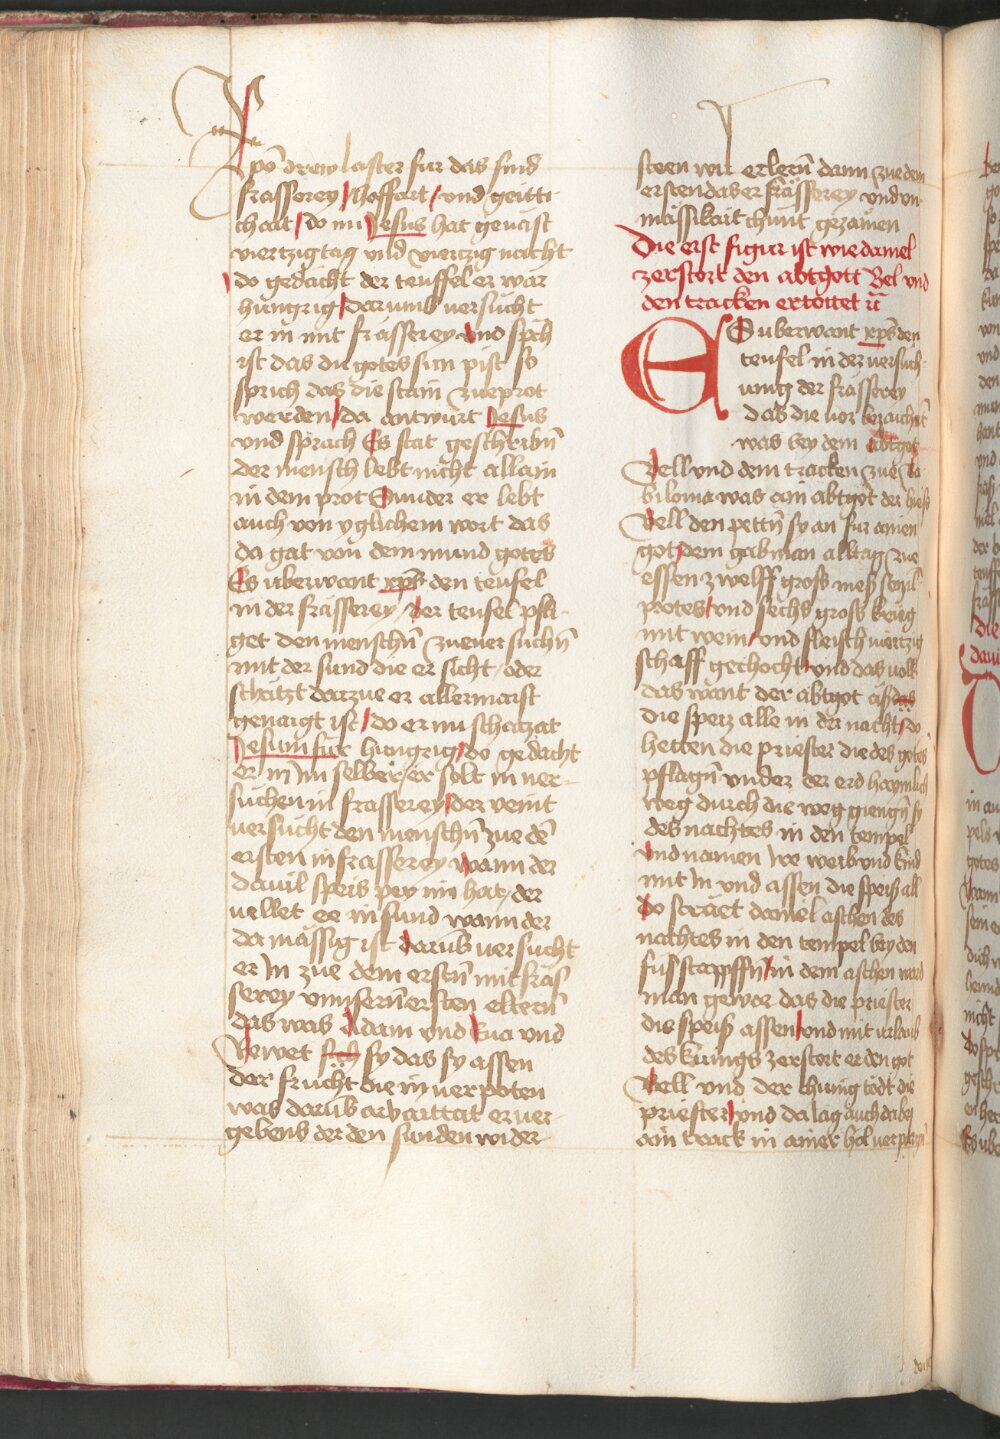 xpō drew laster fur das sind
frässerey / hoffart / vnd geitti-
chait / do nu Jesus hat geuast
viertzig tag vnd viertzig nacht
do gedacht der teuffel er wär
hungrig / darumb versücht
er in mit frässerey vnd sprch
ist das du gotes sun pist so
sprich das die stain zue prot
werden / da antwurt Jesus
vnd sprach Es stat geschribn̄
der mensch lebt nicht allain
in dem prot Sunder er lebt
auch von yglichem wort das
da gat von dem mund gotes
Es uberwant xp̄s den teufel
in der frässerey / der teufel pfli-
get den menschn̄ zue uersuchn̄
mit der sund die er sicht / oder
schätzt dar zue er allermaist
genaigt ist / do er nu schatzat
Jesum für hungrig / do gedacht
er in im selber er solt in ver-
suchen in frässerey / der veint
versücht den menschn̄ zue dē
ersten in frässerey wann der
da uil speis pey im hat / der
uellet ee in sund wann der
da mässig ist darūb versücht
er In zue dem erstn̄ mit fräs
serey vnnsern̄ ersten eltern̄
das was Adam vnd Eua vnd
Bewet sich sy das sy assen
der frücht die in verpoten
was darūb arbaittat er ver-
gebens der den sunden wider-
steen wil erlern̄ dann zue dem
ersten das er frässerey vnd vn-
mässikait chunt gezämen
Die erst figur ist wie daniel
zerstört den abtgott Bel vnd
den tracken ertöttet ꝛc
Es uberwant xp̄s den
teufel in der versuch-
unng der frässerey
das die vor bezaichn̄t
was bey dem abtgot
Bell vnd dem tracken zue Ba
bilonia was ain abtgöt der hieß
Bell den pettn̄ sy an für ainen
got / dem gab man alltag zue
essen zwelff gross meß semel
protes / vnd sechs gross krueg
mit wein / vnd fleisch viertzig
schaff gechocht / vnd das volk
das wänt der abtgot äß das
die speiz alle in der nacht / do
hetten die priester die des gotes
pflagn̄ vnder der erd haymlich
weg durch die weg giengn̄ sy
des nachtes in den tempel
vnd namen ire weib vnd kind
mit In vnd assen die speiß all
do sträet daniel aschen des
nachtes in den tempel bey den
fuß stapffn̄ / in dem aschen ward
man gewar das die priester
die speiß assen / vnd mit urlaub
des künigs zerstört er den got
Bell vnd der chunig tödt die
priester / vnd da lag auch da bey
ain track in ainer höl verporgn̄